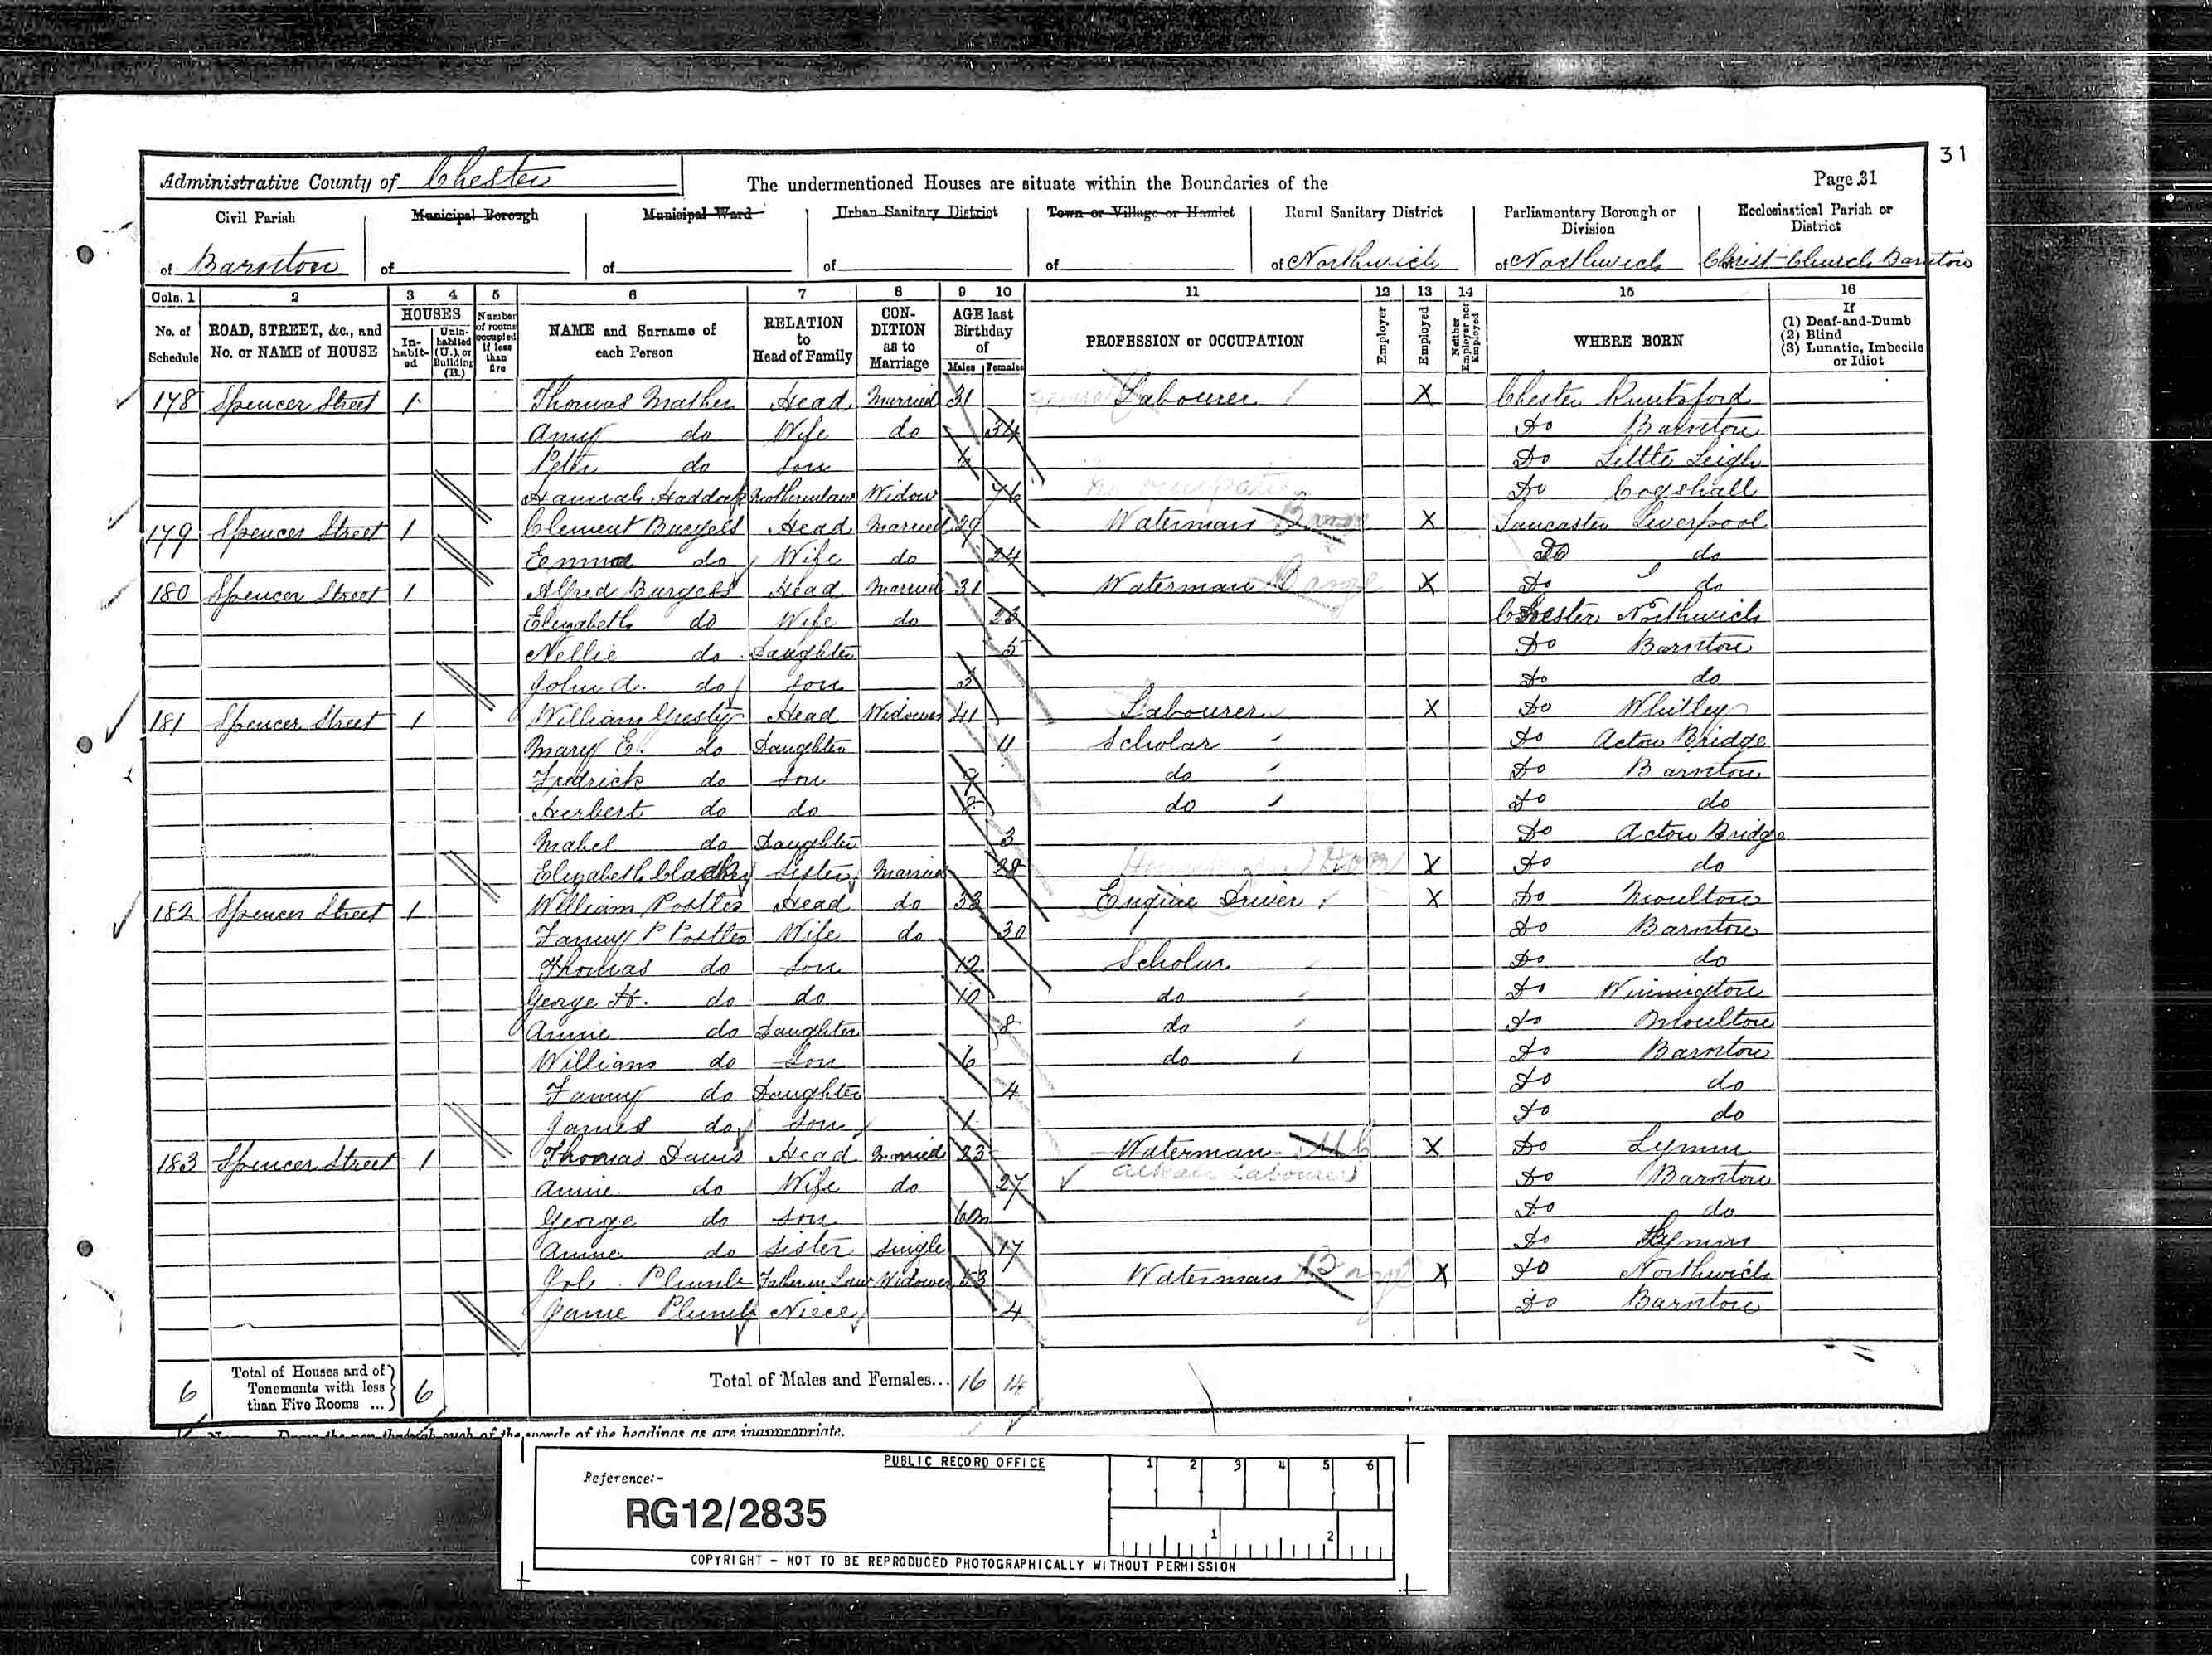 31
Administrative County of Chester The undermentioned Houses are situate within the Boundaries of the Page 31
Civil Parish Municipal Borough Municipal Ward Urban Sanitary District Town or Village or Hamlet Rural Sanitary District Parliamentary Borough or Division Ecclesiastical Parish or District
of Barnton of of of of of Northwich of Northwich Christ Church Barnton
Cols. 1 2 3 4 5 6 7 8 9 10 11 12 13 14 15 16
No. of Schedule ROAD, STREET, &c., and No. or NAME of HOUSE HOUSES In-habit-ed Unin-habited (U.), or Building (B.) Number of rooms occupied if less than five NAME and Surname of each Person RELATION to Head of Family CON-DITION as to Marriage AGE last Birthday of Males Females PROFESSION or OCCUPATION Employer Employed Neither Employer nor Employed WHERE BORN If (1) Deaf-and-Dumb (2) Blind (3) Lunatic, Imbecile or Idiot
178 Spencer Street 1 Thomas Mather Head Married 31 General Labourer X Chester Knutsford
Amy do Wife do 34 Do Barnton
Peter do Son 6 Do Little Leigh
Hannah Motherinlaw Widow 76 No occupation Do Cogshall
179 Spencer Street 1 Clement Burgess Head Married 29 Waterman Barge X Lancaster Liverpool
Emma do Wife do 24 Do do
180 Spencer Street 1 Alfred Burgess Head Married 31 Waterman Barge X Do do
Elizabeth do Wife do 23 Chester Northwich
Nellie do Daughter 5 Do Barnton
John A. do Son 2 Do do
181 Spencer Street 1 William Head Widower 41 Labourer X Do Whitley
Mary E. do Daughter 11 Scholar Do Acton Bridge
Fredrick do Son 9 do Do Barnton
Herbert do do 8 do Do do
Mabel do Daughter 3 Do Acton Bridge
Elizabeth Sister Married 28 X Do do
182 Spencer Street 1 William Postles Head do 33 Engine Driver X Do Moulton
Fanny P Postles Wife do 30 Do Barnton
Thomas do Son 12 Scholar Do do
George H. do do 10 do Do Winnington
Annie do Daughter 8 do Do Moulton
William do Son 6 do Do Barnton
Fanny do Daughter 4 Do do
James do Son 1 Do do
183 Spencer Street 1 Thomas Davis Head Married 23 Waterman X Do Lymm
Annie do Wife do 27 Alkali Labourer Do Barnton
George do Son 6m Do do
Annie do Sister Single 17 Do Lymm
Job Plumb Father in Law Widower 53 Waterman Barge X Do Northwich
Jane Plumb Niece 4 Do Barnton
6 Total of Houses and of Tenements with less than Five Rooms ... 6 Total of Males and Females... 16 14
Draw the pen through such of the words of the headings as are inappropriate.
PUBLIC RECORD OFFICE 1 2 3 4 5 6
Reference:-
RG12/2835
1 2
COPYRIGHT - NOT TO BE REPRODUCED PHOTOGRAPHICALLY WITHOUT PERMISSION